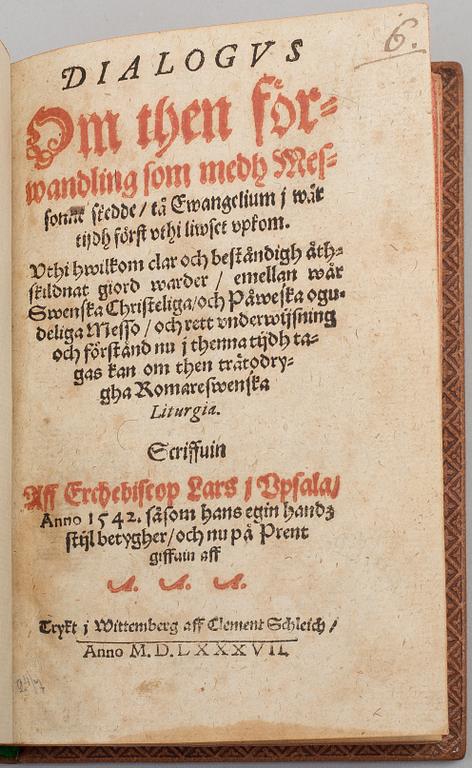 6.
DIALOGVS
Om then för=
wandling som medh Mes=
sonne skedde / tå Ewangelium j wår
tijdh först vthi liwset vpkom.
Vthi hwilkom clar och beståndigh åth=
skildnat giord warder / emellan wår
Swenska Christeliga/och Påweska ogu=
deliga Messo / och rett vnderwijsning
och förstånd nu j thenna tijdh ta=
gas kan om then trätodry=
gha Romareswenska
Liturgia.
Scriffuin
Aff Erchebiscop Lars j Vpsala/
Anno 1542. såsom hans egin handz
stijl betygher/och nu på Prent
giffuin aff
A. A. A.
Tryckt j Wittemberg aff Clement Schleich /
Anno M. D. LXXXVII.